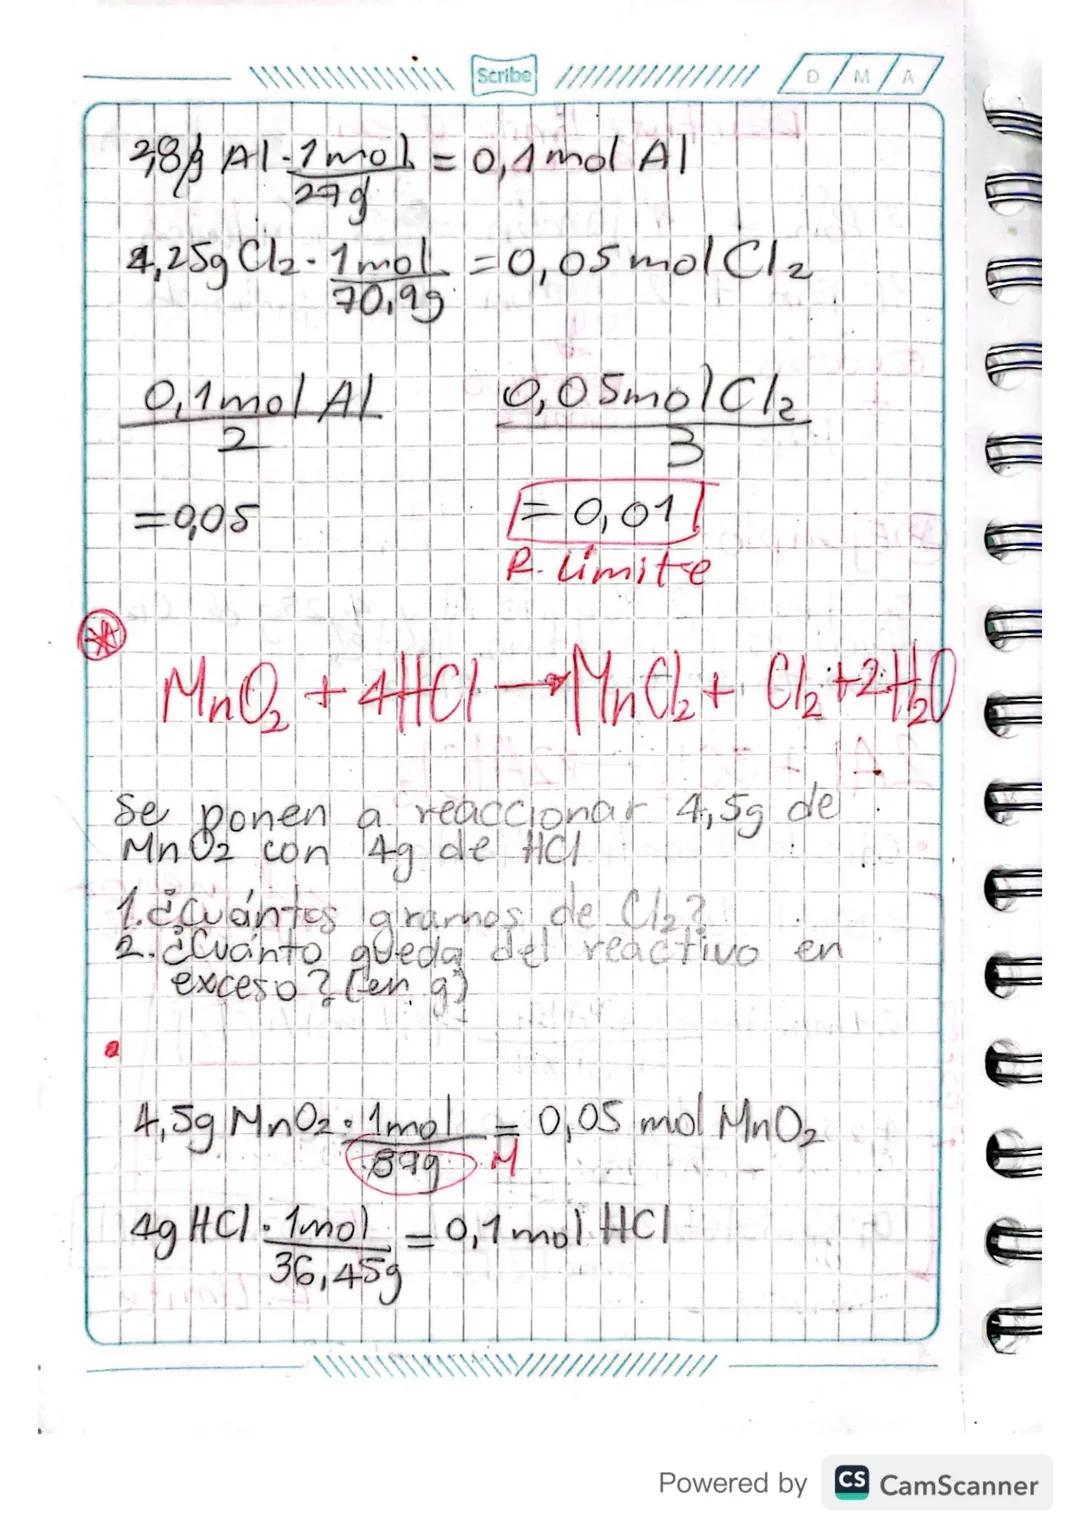 Scribe D M A
2,8g Al · 1mol = 0,1mol Al
27g
4,25g Cl2 · 1mol = 0,05 mol Cl2
70,9g
0,1mol Al 0,05mol Cl2
2 3
=0,05 = 0,01
R. Límite
MnO2 + 4HCl → MnCl2 + Cl2 + 2H2O
Se ponen a reaccionar 4,5g de
MnO2 con 4g de HCl
1. ¿Cuántos gramos de Cl2?
2. ¿Cuánto queda del reactivo en
exceso? (en g)
4,5g MnO2 · 1mol = 0,05 mol MnO2
87g M
4g HCl · 1mol = 0,1 mol HCl
36,45g
Powered by CS CamScanner